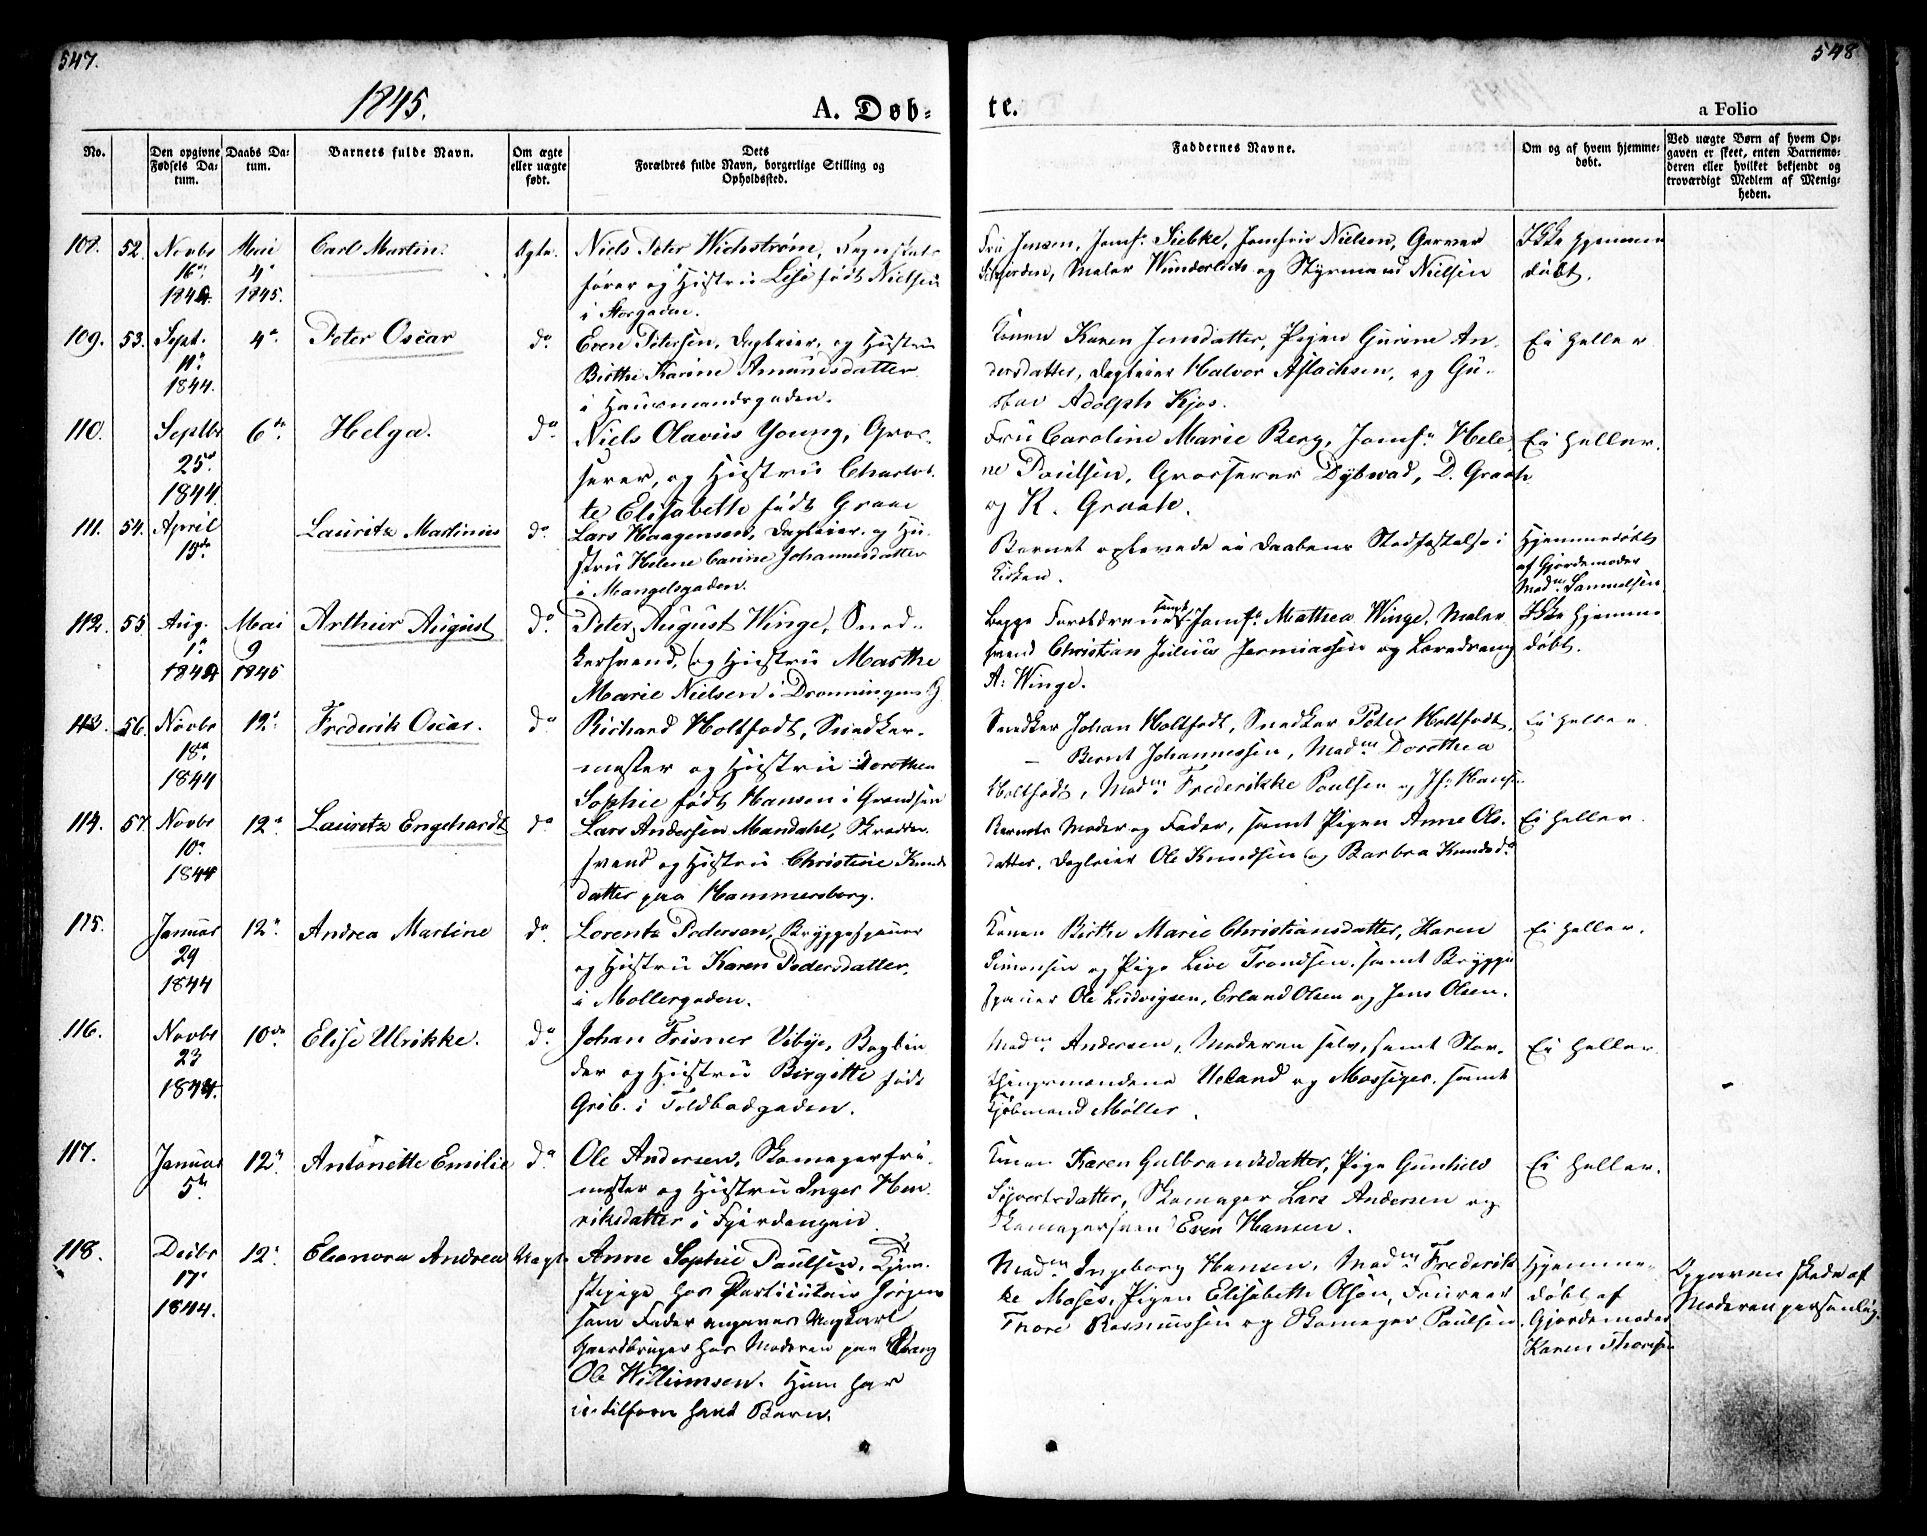 547.
548
1845.
A. Døb-
te.
a Folio
No.
Den opgivne Fødsels Datum.
Daabs Datum.
Barnets fulde Navn.
Om ægte eller uægte født.
Dets
Forældres fulde Navn, borgerlige Stilling og
Opholdssted.
Faddernes Navne.
Om og af hvem hjemmedøbt.
Ved uægte Børn af hvem Opgaven er skeet, enten Barnemoderen eller hvilket bekjendt og troværdigt Medlem af Menigheden.
108. 52. Novbr 16de 1844. Mai 4de 1845. Carl Martin. Ægte.
Niels Peter Wichstrøm, Regnskabs-
fører og Hustru Lise født Nielsen
i Storgaden.
Fru Jensen, Jomf: Siebke, Jomfrue Nielsen, Garver
Maler Wunderlich og Styrmand Nielsen
Ikke hjemme
døbt.
109. 53. Sept. 11te 1844. 4de Peter Oscar do
Even Petersen, Dagleier, og Hustru
Birthe Karine Amundsdatter
i Hausmandsgaden.
Konen Karen Jensdatter, Pigen Gurine An-
dersdatter, Dagleier Halvor Aslachsen, og Gu-
stav Adolph Kjos.
Ei heller
110. Septbr 25de 1844. 6te Helga. do
Niels Olavus Young, Gros-
serer, og Hustru Charlot-
te Elisabeth født Graae
Fru Caroline Marie Berg, Jomf: Hele-
ne Poulsen, Grosserer Dybwad, D. Graah
og K. Graah.
Ei heller.
111. 54. April 15de Lauritz Martinius do
Lars Haagensen, Dagleier, og Hu-
stru Helene Carine Johannesdatter
i Mangelsgaden.
Barnet oplevede ei Daabens Stadfæstelse i
Kirken.
Hjemmedøbt
af Gjordemoder
Madm Samuelsen
112. 55 Aug. 1te 1844 Mai 9 1845 Arthur August do
Peter August Winge, Sned-
kersvend, og Hustru Marthe
Marie Nielsen i Dronningens G
Begge Forældrene samt Jomf: Mathea Winge, Maler
svend Christian Julius Jermiassen og Læredreng
A: Winge.
Ikke hjemme
døbt.
113. 56. Novbr 18de 1844 12te Frederik Oscar. do
Richard Holtfodt, Snedker-
mester og Hustru Dorothea
Sophie født Hansen i Grændsen
Snedker Johan Holtfodt, Snedker Peter Holtfodt,
— Bernt Johannessen, Madm Dorothea
Holtfodt, Madm Frederikke Poulsen og Jf: Hansen
Ei heller
114. 57 Novbr 10de 1844 12te Lauritz Engehardt do
Lars Andersen Mandahl, Skrædder-
svend og Hustru Christine Knuds
datter paa Hammersborg.
Barnets Moder og Fader, samt Pigen Anne Ols-
datter, Dagleier Ole Knudsen og Barbra Knudsd.
Ei heller.
115. Januar 29 1844 12te Andrea Martine do
Lorentz Pedersen, Bryggespauer
og Hustru Karen Pedersdatter,
i Møllergaden.
Konen Birthe Marie Christiansdatter, Karen
Simonsen og Pige Live Trondsen, samt Brygge
spauer Ole Ludvigsen, Erland Olsen og Jens Olsen.
Ei heller.
116. Novbr 23 1844. 10de Elise Ulrikke. do
Johan Frisner Vibye, Bogbin
der og Hustru Birgitte født
Grib. i Toldbodgaden.
Madm Andersen, Moderen selv, samt Stor-
thingsmændene Ueland og Mossiger, samt
Kjøbmand Møller.
Ei heller.
117. Januar 5te 12te Antonette Emilie do
Ole Andersen, Skomagerfri-
mester og Hustru Inger Hen-
riksdatter i Fjerdingen.
Konen Karen Gulbrandsdatter, Pige Gunhild
Syvertsdatter, Skomager Lars Andersen og
Skomagersven Even Hansen.
Ei heller.
118. Decbr 17de 1844. 12te Eleonora Andrea Uægte
Anne Sophie Paulsen, Tjene-
stepige hos Particulair Jørgens
som Fader angaves Ungkarl
Gaardbruger hos Moderen paa
Ole Willumsen. Hun har
ei tilforn havt Børn.
Madm Ingeborg Hansen, Madm Frederik-
ke Moses, Pigen Elisabeth Olsen,
Thore Rasmussen og Skomager Paulsen
Hjemme-
døbt af
Gjordemoder
Karen Thoresen
Opgaven skede af
Moderen personlig.